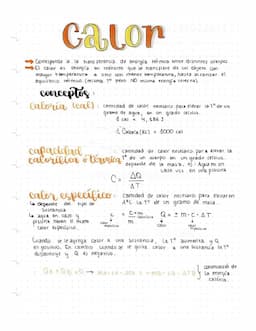 Calor
→ Corresponde a la transferencia de energía térmica entre distintos cuerpos.
→ El calor es energía en tránsito que se transfiere de un objeto con
mayor temperatura a otro con menor temperatura, hasta alcanzar el
equilibrio térmico (misma T° pero NO misma energía interna).
conceptos:
caloría (cal): Cantidad de calor necesario para elevar la T° de un
gramo de agua, en un grado celsius.
1 cal = 4,184 J
1 Caloría (kc) = 1000 cal
capacidad
calorífica o térmica: Cantidad de calor necesario para elevar la
T° de un cuerpo en un grado celsius.
depende de la masa.
C = ΔQ
ΔT
calor específico: Cantidad de calor necesario para elevar en
1°C la T° de un gramo de masa.
↳ depende del tipo de
sustancia
Q = m · c · ΔT
Cuando se le agrega calor a una sustancia, la T° aumenta y Q
es positivo. En cambio cuando se le quita calor a una sustancia la T°
disminuye y Q es negativo.
conservación de
la energía
calórica.